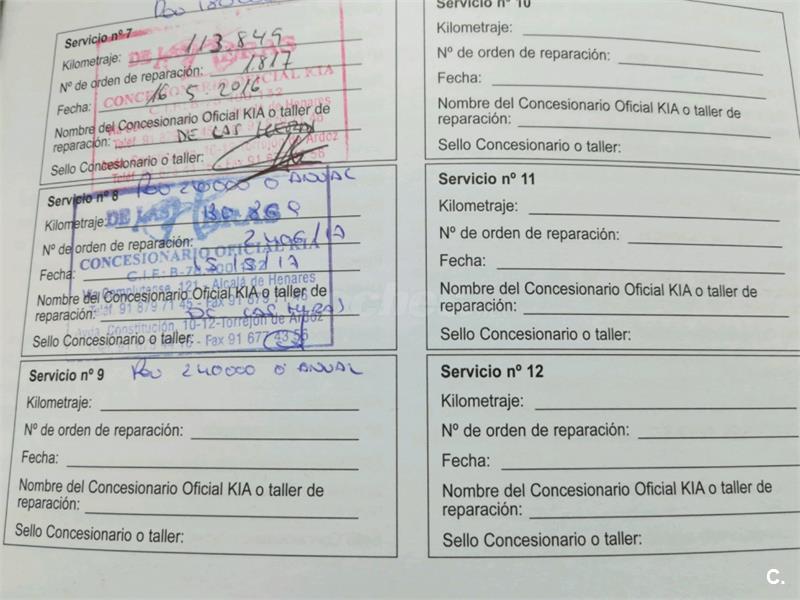 Servicio nº 7
Kilometraje: 113.849
Nº de orden de reparación: 1817
Fecha: 16 5 2016
Nombre del Concesionario Oficial KIA o taller de
reparación: DE LAS HERAS
Sello Concesionario o taller:
DE LAS HERAS
CONCESIONARIO OFICIAL KIA
Servicio nº 8 REV 240000 O ANUAL
Kilometraje:
Nº de orden de reparación: 2406/17
Fecha:
Nombre del Concesionario Oficial KIA o taller de
reparación: DE LAS HERAS
Sello Concesionario o taller:
DE LAS HERAS
CONCESIONARIO OFICIAL KIA
Vía Complutense, 121 - Alcalá de Henares
Teléf. 91 879 71 45 - Fax 91
Avda. Constitución, 10-12-Torrejón de Ardoz
- Fax 91 677 43 56
Servicio nº 9 REV 240000 O ANUAL
Kilometraje:
Nº de orden de reparación:
Fecha:
Nombre del Concesionario Oficial KIA o taller de
reparación:
Sello Concesionario o taller:
Servicio nº 10
Kilometraje:
Nº de orden de reparación:
Fecha:
Nombre del Concesionario Oficial KIA o taller de
reparación:
Sello Concesionario o taller:
Servicio nº 11
Kilometraje:
Nº de orden de reparación:
Fecha:
Nombre del Concesionario Oficial KIA o taller de
reparación:
Sello Concesionario o taller:
Servicio nº 12
Kilometraje:
Nº de orden de reparación:
Fecha:
Nombre del Concesionario Oficial KIA o taller de
reparación:
Sello Concesionario o taller:
C.